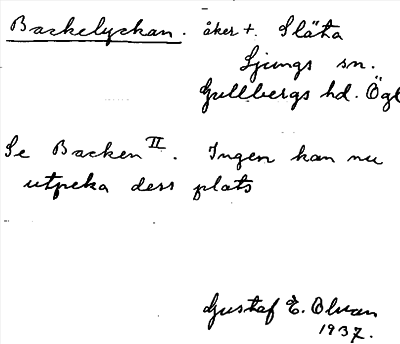 Backelyckan. åker +. Släta
Ljungs sn.
Gullbergs hd. Ögl
Se Backen II. Ingen kan nu
utpeka dess plats
Gustaf E. Olvan
1937.